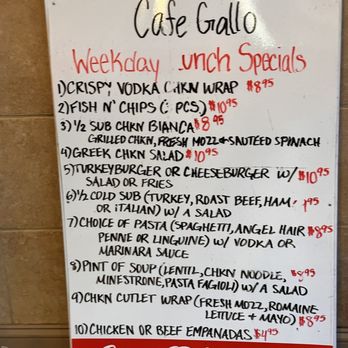 Cafe Gallo
Weekday unch Specials
1) CRISPY VODKA CHKN WRAP $8.95
2) FISH N' CHIPS ( PCS) $10.95
3) 1/2 SUB CHKN BIANCA $8.95
GRILLED CHKN, FRESH MOZZ & SAUTEED SPINACH
4) GREEK CHKN SALAD $10.95
5) TURKEYBURGER OR CHEESEBURGER W/ $10.95
SALAD OR FRIES
6) 1/2 COLD SUB (TURKEY, ROAST BEEF, HAM
OR ITALIAN) W/ A SALAD
7) CHOICE OF PASTA (SPAGHETTI, ANGEL HAIR $8.95
PENNE OR LINGUINE) W/ VODKA OR
MARINARA SAUCE
8) PINT OF SOUP (LENTIL, CHKN NOODLE,
MINESTRONE, PASTA FAGIOLI) W/ A SALAD
9) CHKN CUTLET WRAP (FRESH MOZZ, ROMAINE
LETTUCE + MAYO) $8.95
10) CHICKEN OR BEEF EMPANADAS $4.95